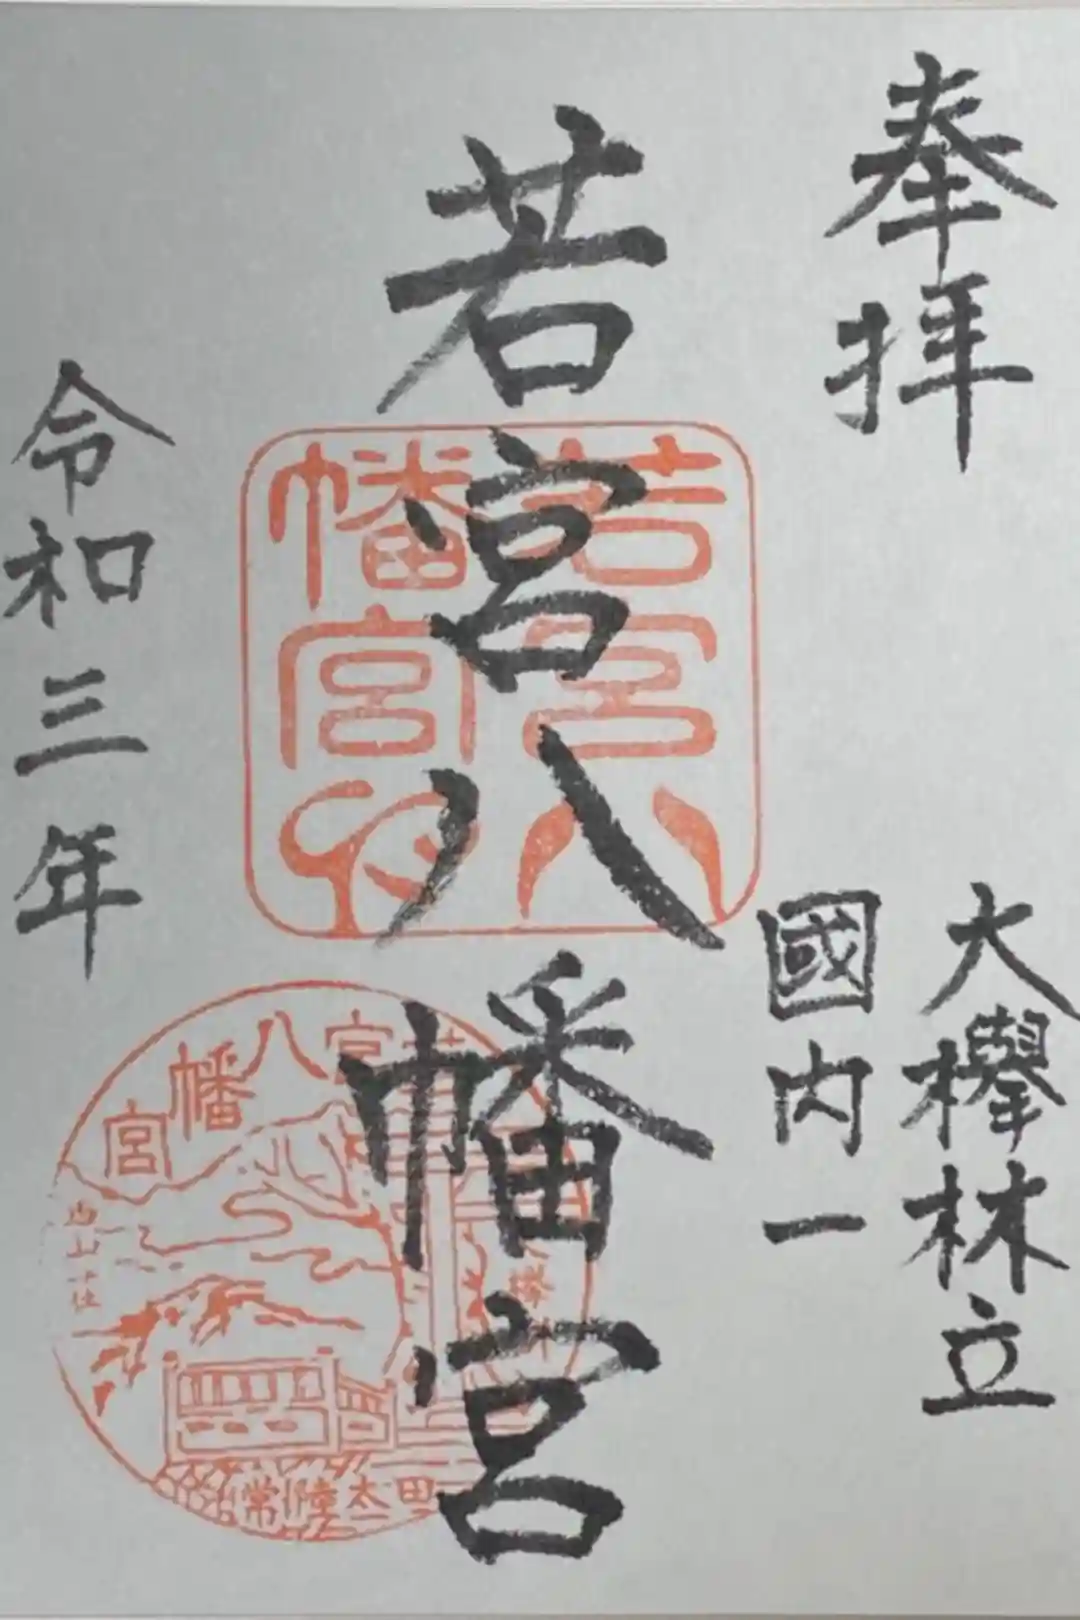 奉拝
大欅林立
國内一
若宮八幡宮
令和三年
若宮八
幡宮
宮八幡宮
西山
常陸太田